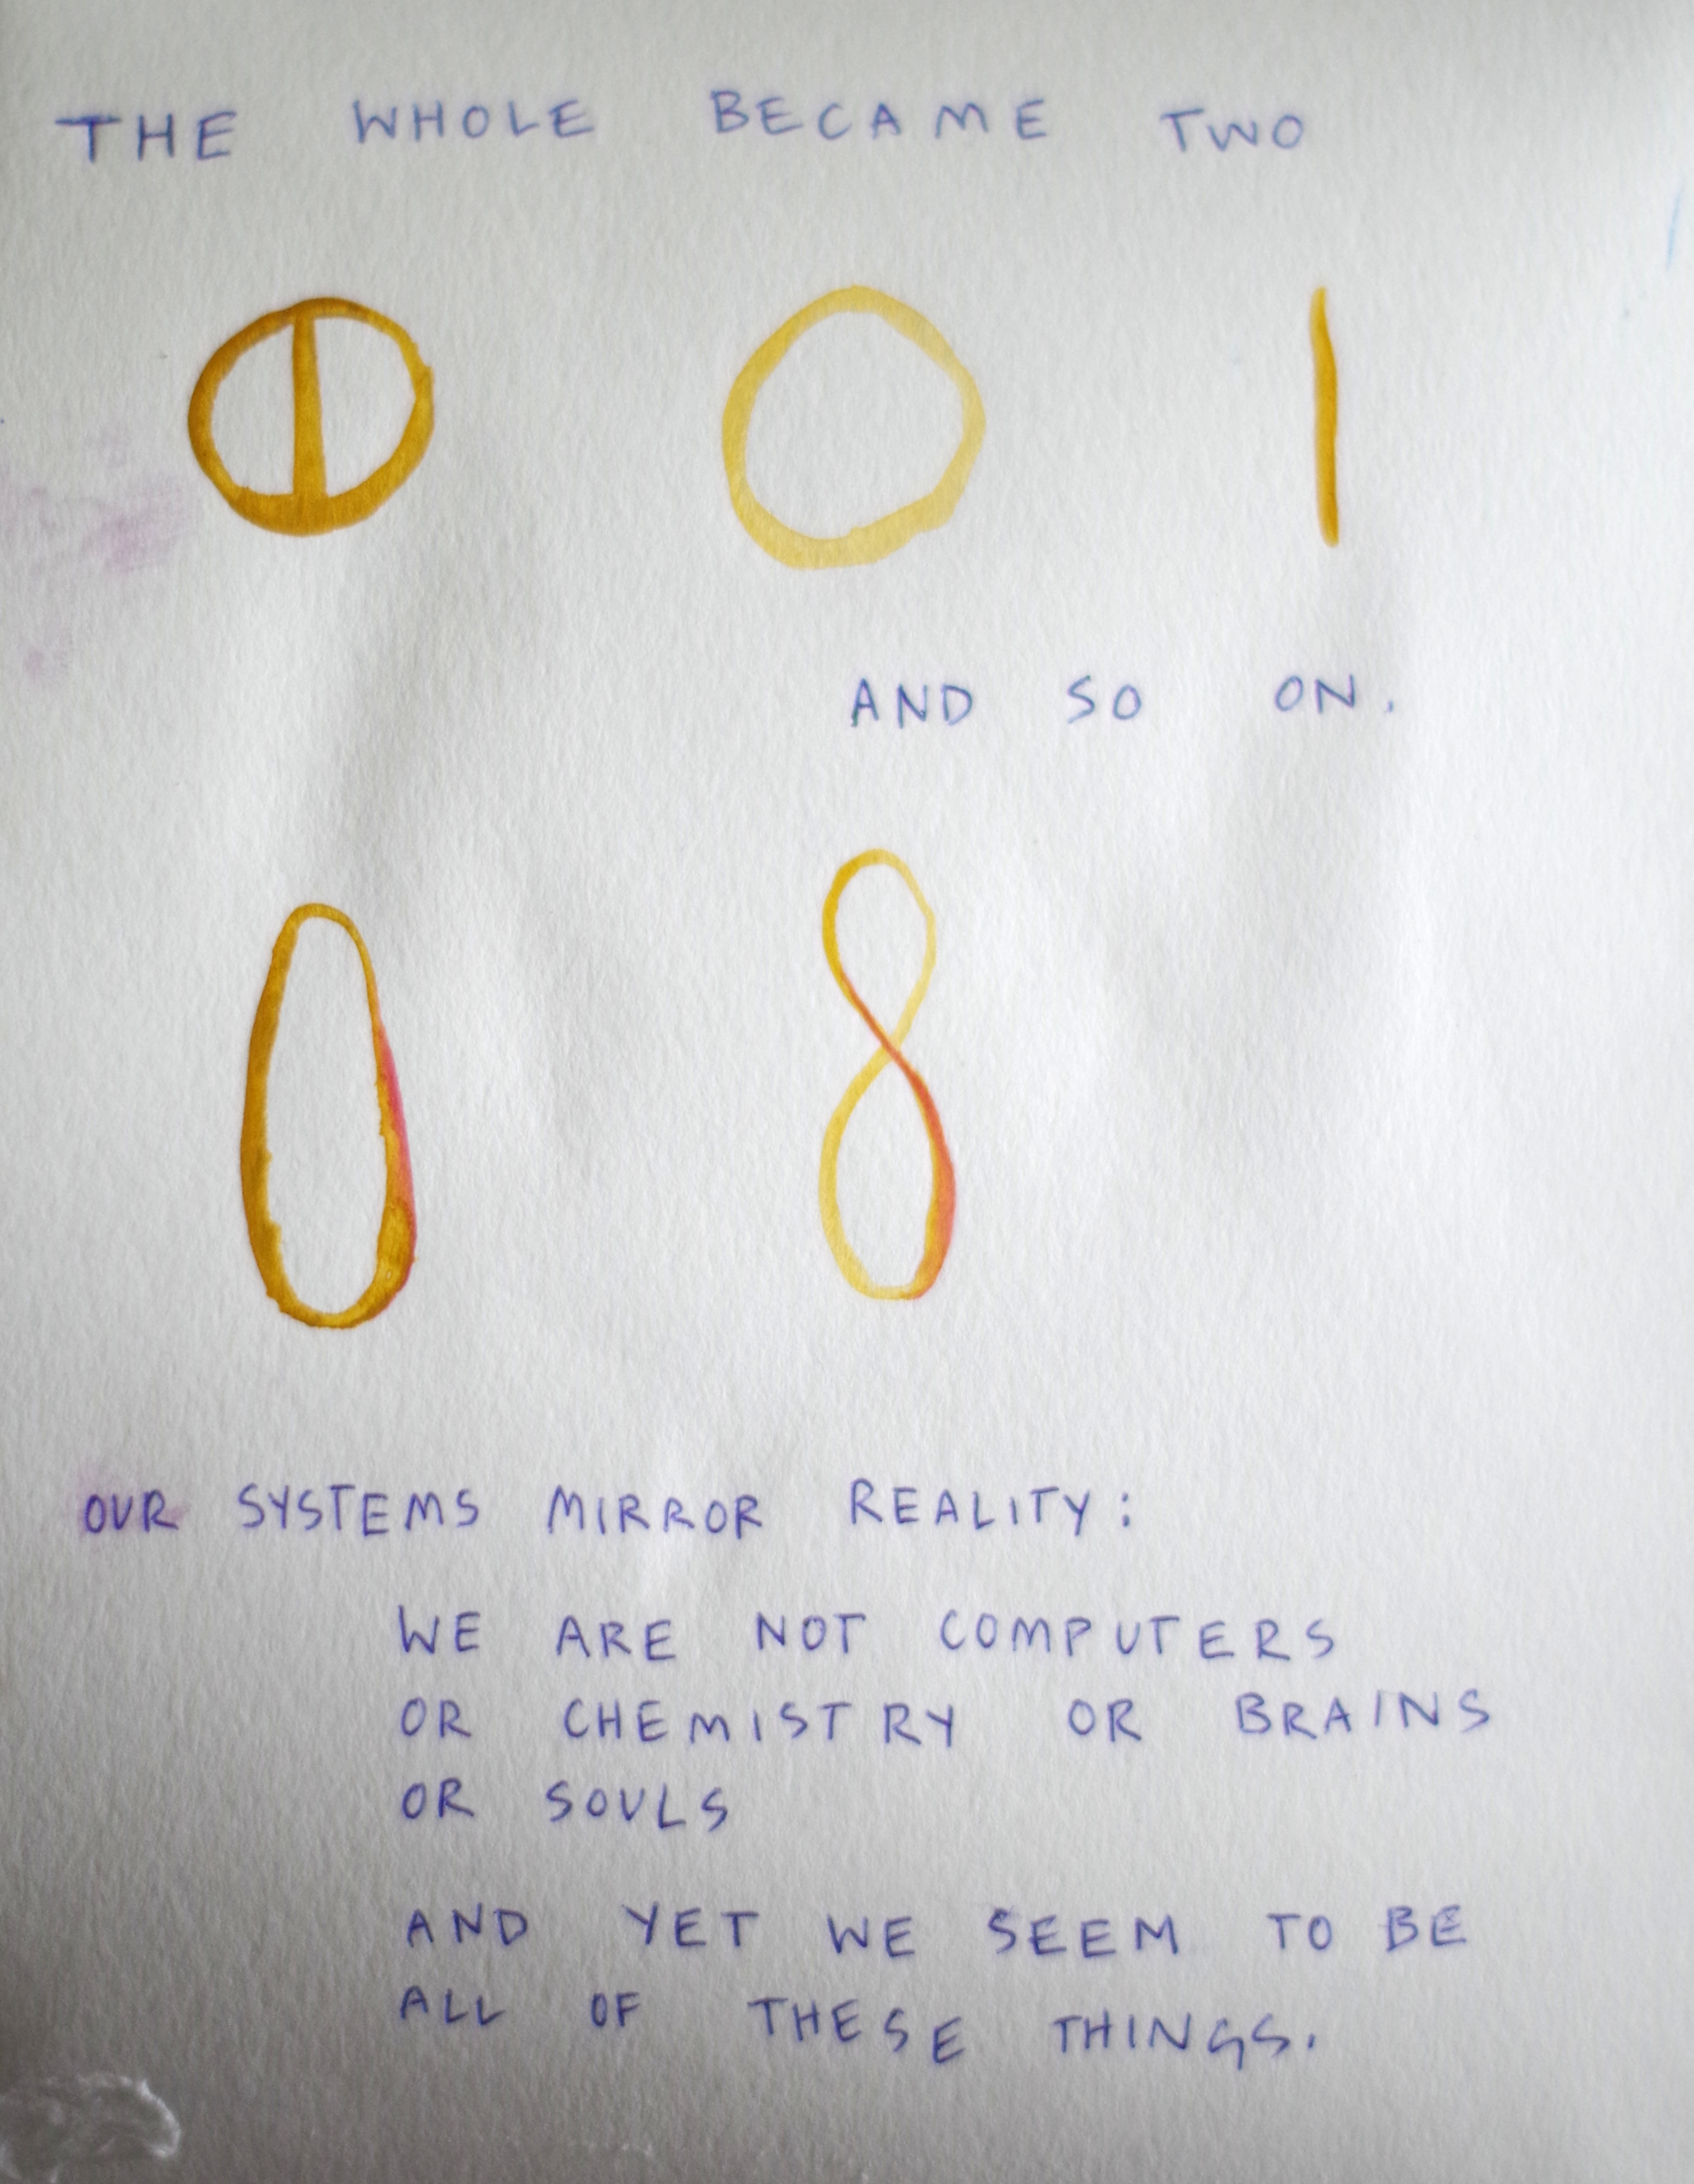 THE WHOLE BECAME TWO
0 1
AND SO ON.
0 8
OUR SYSTEMS MIRROR REALITY:
WE ARE NOT COMPUTERS
OR CHEMISTRY OR BRAINS
OR SOULS
AND YET WE SEEM TO BE
ALL OF THESE THINGS.